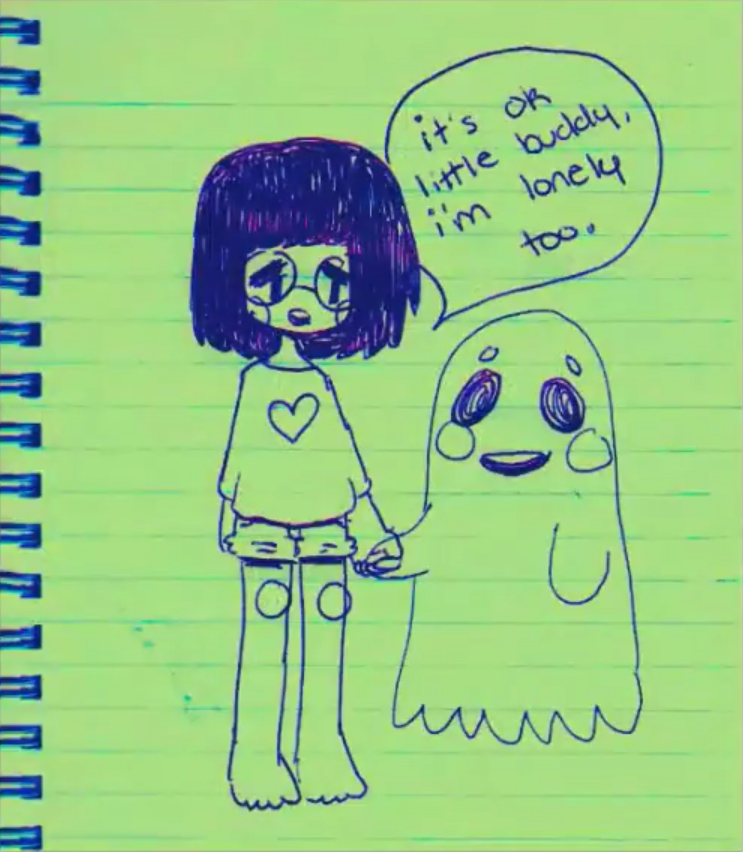 it's ok
little buddy,
i'm lonely
too.